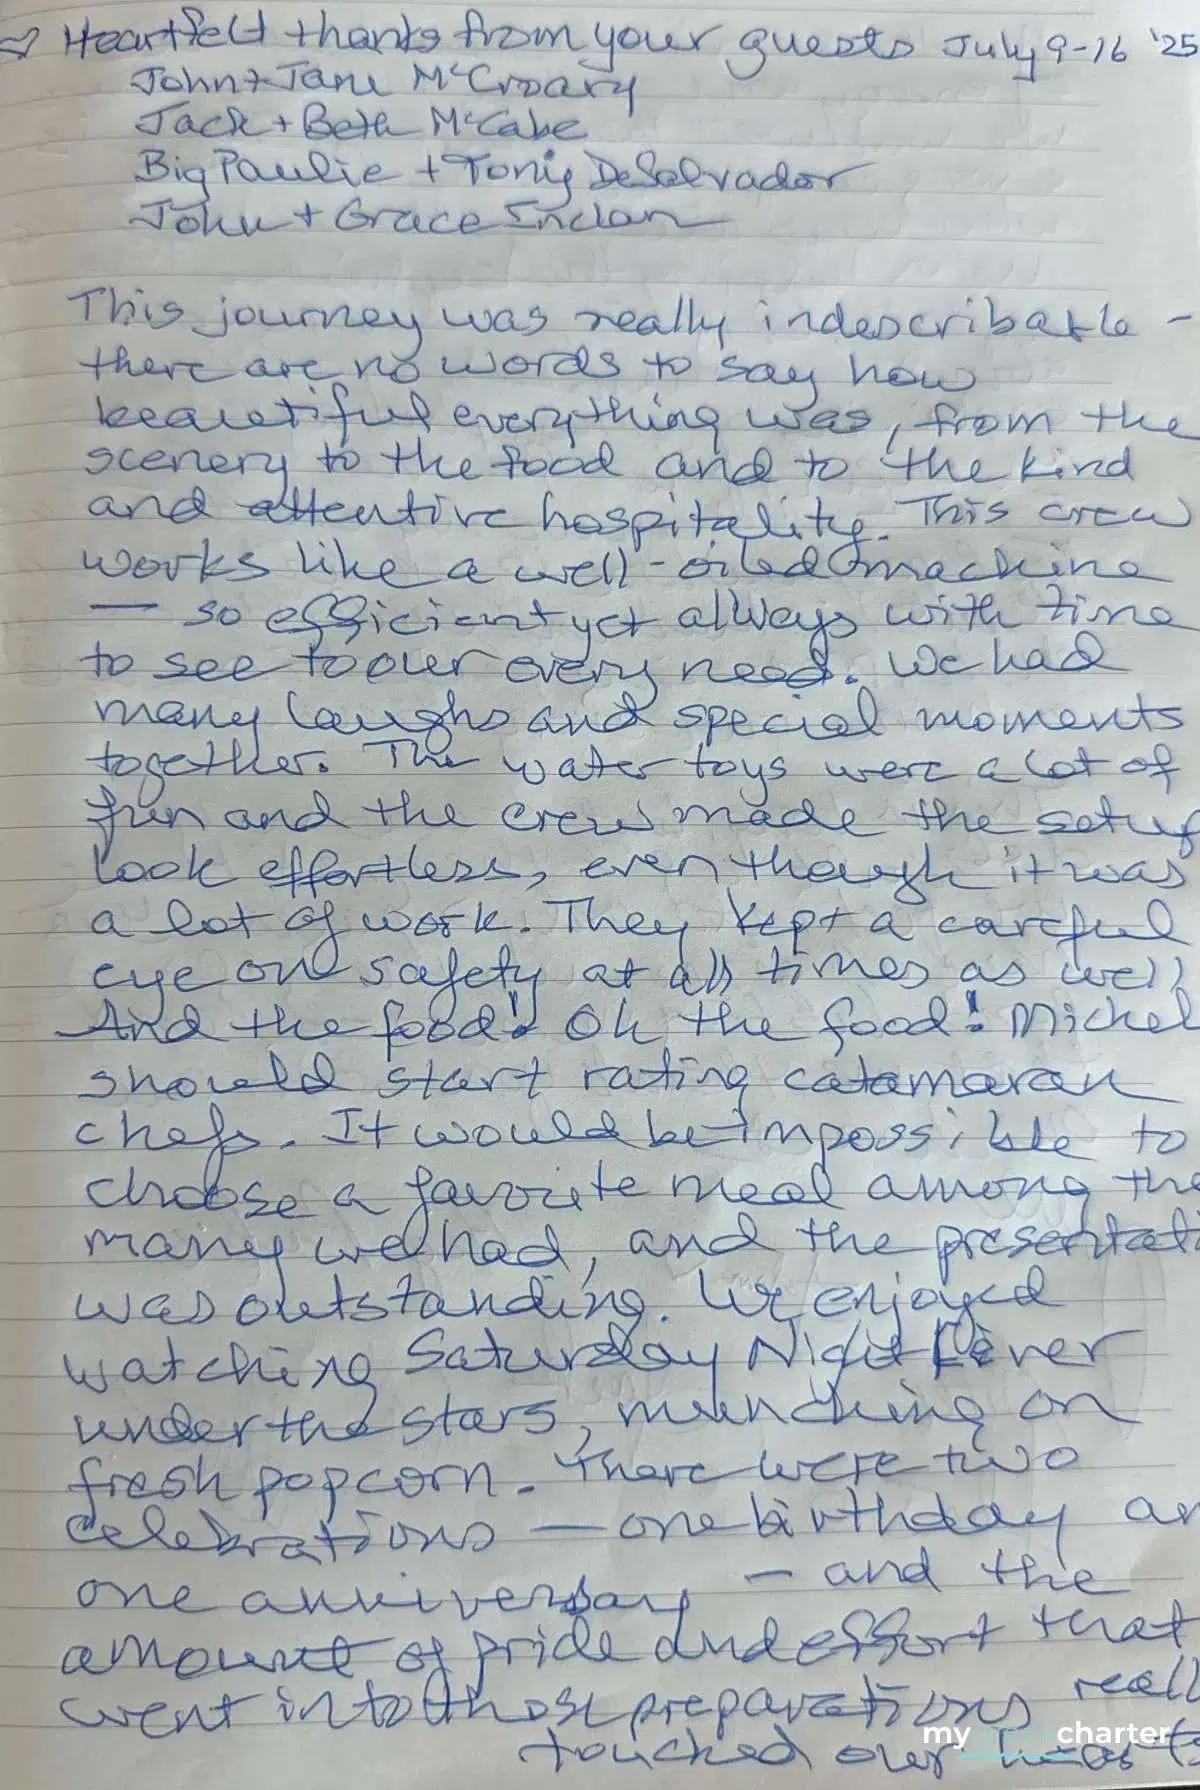 Heartfelt thanks from your guests July 9-16 '25
John + Jane McCroary
Jack + Beth McCabe
Big Paulie + Tony DeSalvador
John + Grace Inclan
This journey was really indescribable -
there are no words to say how
beautiful everything was, from the
scenery to the food and to the kind
and attentive hospitality. This crew
works like a well-oiled machine
— so efficient yet always with time
to see to our every need. We had
many laughs and special moments
together. The water toys were a lot of
fun and the crew made the setup
look effortless, even though it was
a lot of work. They kept a careful
eye on safety at all times as well
And the food! Oh the food! Michel
should start rating catamaran
chefs. It would be impossible to
choose a favorite meal among the
many we had, and the presentati
was outstanding. We enjoyed
watching Saturday Night Fever
under the stars, munching on
fresh popcorn. There were two
celebrations — one birthday an
one anniversary — and the
amount of pride and effort that
went into those preparations reall
touched our hearts
my greek charter